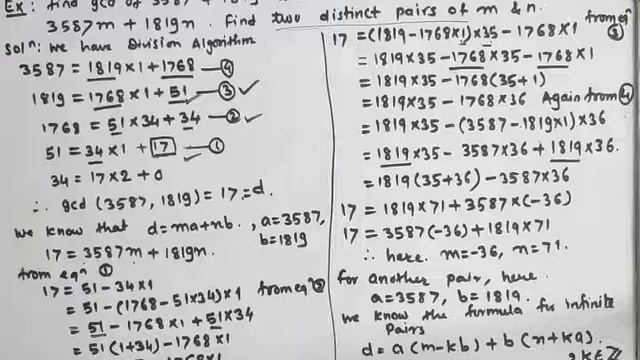 Ex: find gcd of 3587 &
3587m + 1819n. find two distinct pairs of m & n.
Solⁿ: We have Division Algorithm
3587 = 1819×1+1768 —④
1819 = 1768×1+51 —③ ✓
1768 = 51×34+34 —② ✓
51 = 34×1 + 17 —①
34 = 17×2+0
∴ gcd (3587, 1819) = 17 = d.
We know that d=ma+nb., a=3587,
b=1819
17 = 3587m + 1819n.
from eqⁿ ①
17 = 51-34×1
= 51-(1768-51×34)×1 from eqⁿ②
= 51 - 1768×1 + 51×34
= 51(1+34) - 1768×1
17 = (1819-1768×1)×35 - 1768×1 from eqⁿ ③
= 1819×35-1768×35-1768×1
= 1819×35-1768(35+1)
= 1819×35-1768×36 Again from ④
= 1819×35-(3587-1819×1)×36
= 1819×35-3587×36+1819×36.
= 1819(35+36)-3587×36
17 = 1819×71+3587×(-36)
17 = 3587(-36)+1819×71
∴ here. m=-36, n=71.
for another pair, here.
a=3587, b=1819.
we know the formula for infinite
Pairs
d=a(m-kb)+b(n+ka).
k∈Z